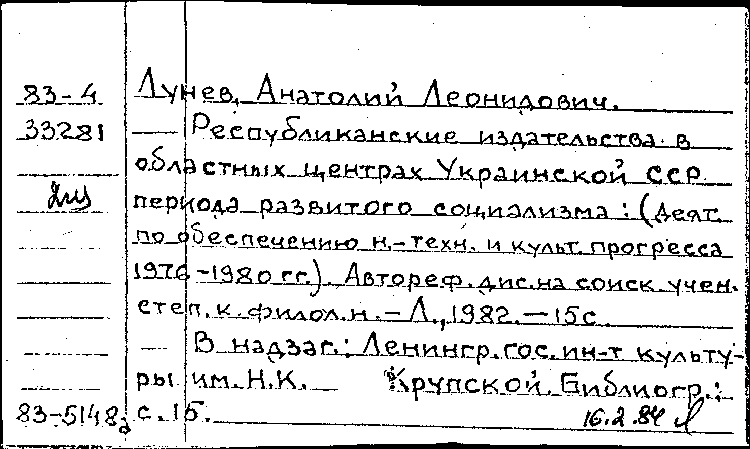 83-4 Лунев, Анатолий Леонидович.
33281 — Республиканские издательства в
областных центрах Украинской ССР
периода развитого социализма: (Деят.
по обеспечению н.-техн. и культ. прогресса
1976-1980 гг.). Автореф. дис. на соиск. учен.
степ. к. филол. н. - Л., 1982. — 15 с.
— В надзаг.: Ленингр. гос. ин-т культу-
ры им. Н.К. Крупской. Библиогр.:
83-5148 с. 15. 16.2.84